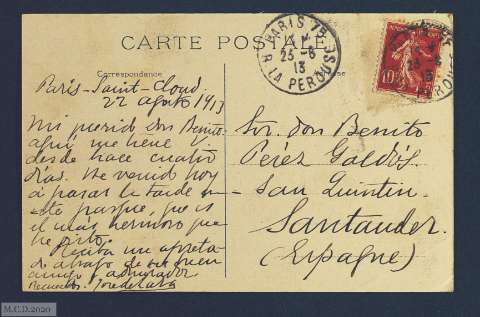 CARTE POSTALE
Correspondance
Paris-Saint-Cloud
22 agosto 1913
Mi querido Don Benito:
aquí me tiene V.
desde hace cuatro
días. He venido hoy
á pasar la tarde en
este parque, que es
el más hermoso que
he visto.
Reciba un apreta-
do abrazo de su buen
amigo y admirador
Sor. Don Benito
Pérez Galdós.
San Quintin.
Santander.
(Espagne)
PARIS
25 - 8
13
R. LA PEROUSE
10
M.C.D.2020